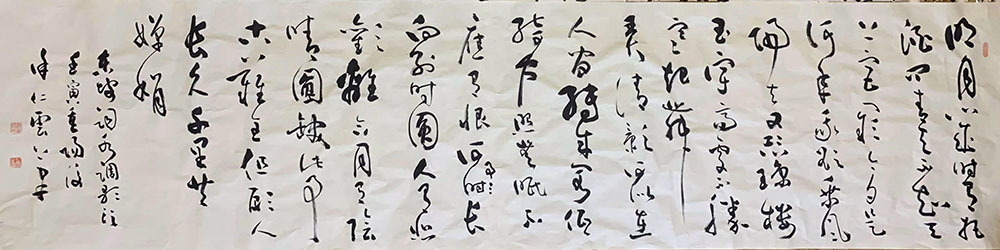 明月幾時有把
酒問青天不知天
上宮闕今夕是
何年我欲乘風
歸去又恐瓊樓
玉宇高處不勝
寒起舞
弄清影何似在
人間轉朱閣低
綺户照無眠不
應有恨何時長
向別時圓人有悲
歡離合月有陰
晴圓缺此事
古難全但願人
長久千里共
嬋娟
東坡詞水調歌頭
壬寅重陽後
仁雲